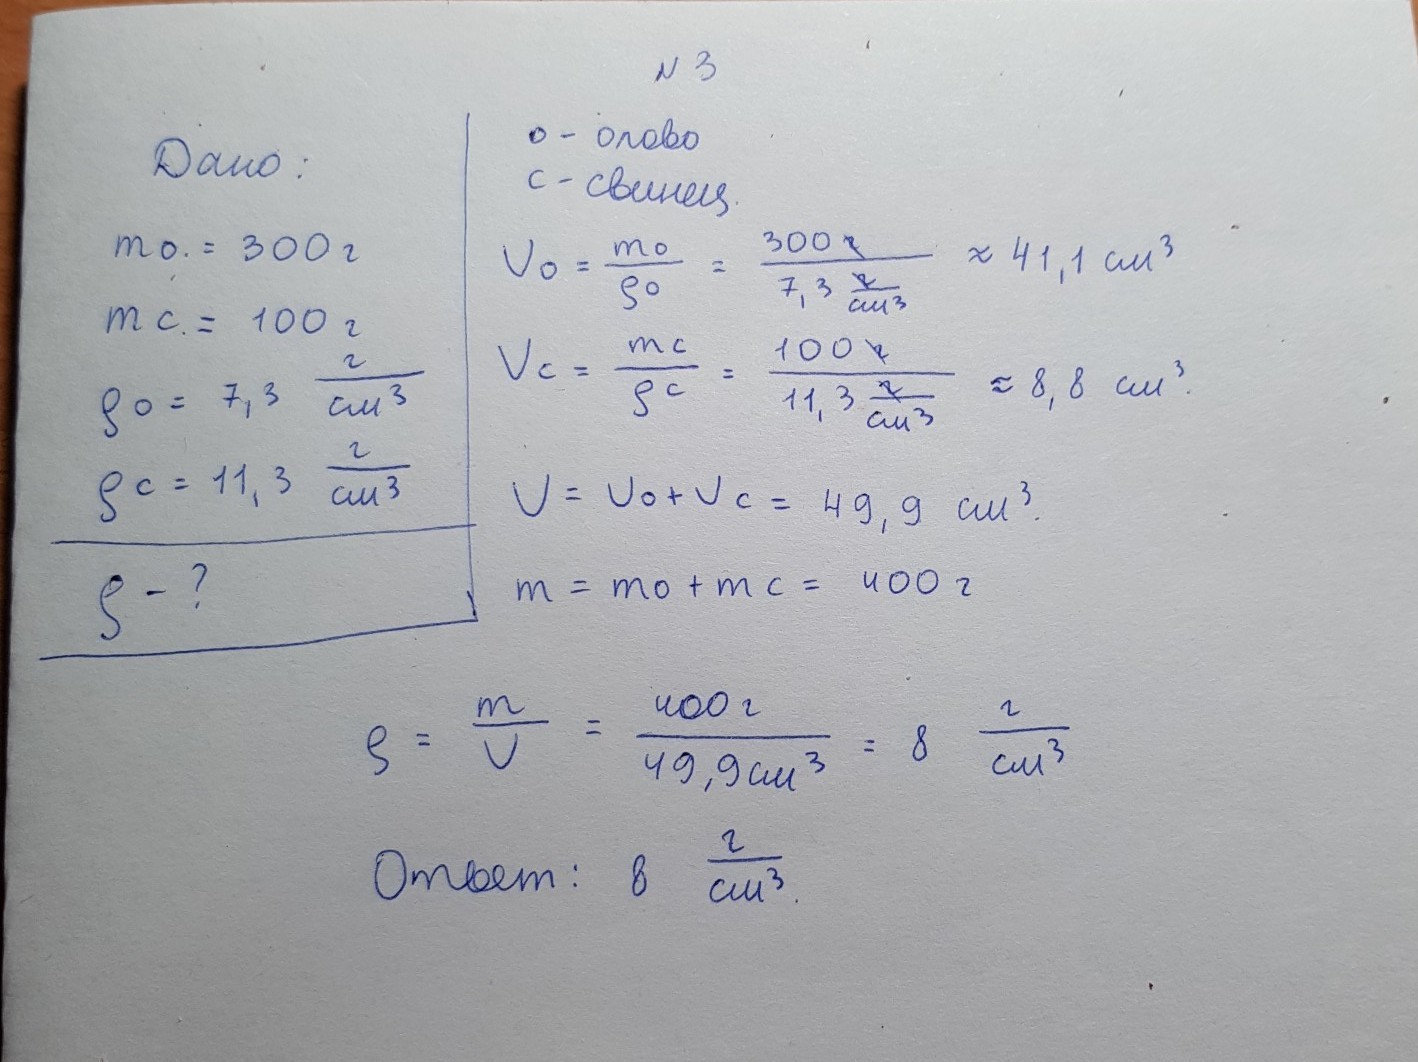 N 3
Дано:
mо. = 300 г
mс. = 100 г
ρо = 7,3 г/см³
ρс = 11,3 г/см³
ρ - ?
о - олово
с - свинец.
Vо = mо/ρо = 300 г/7,3 г/см³ ≈ 41,1 см³
Vс = mс/ρс = 100 г/11,3 г/см³ ≈ 8,8 см³.
V = Vо + Vс = 49,9 см³.
m = mо + mс = 400 г
ρ = m/V = 400 г/49,9 см³ = 8 г/см³
Ответ: 8 г/см³.